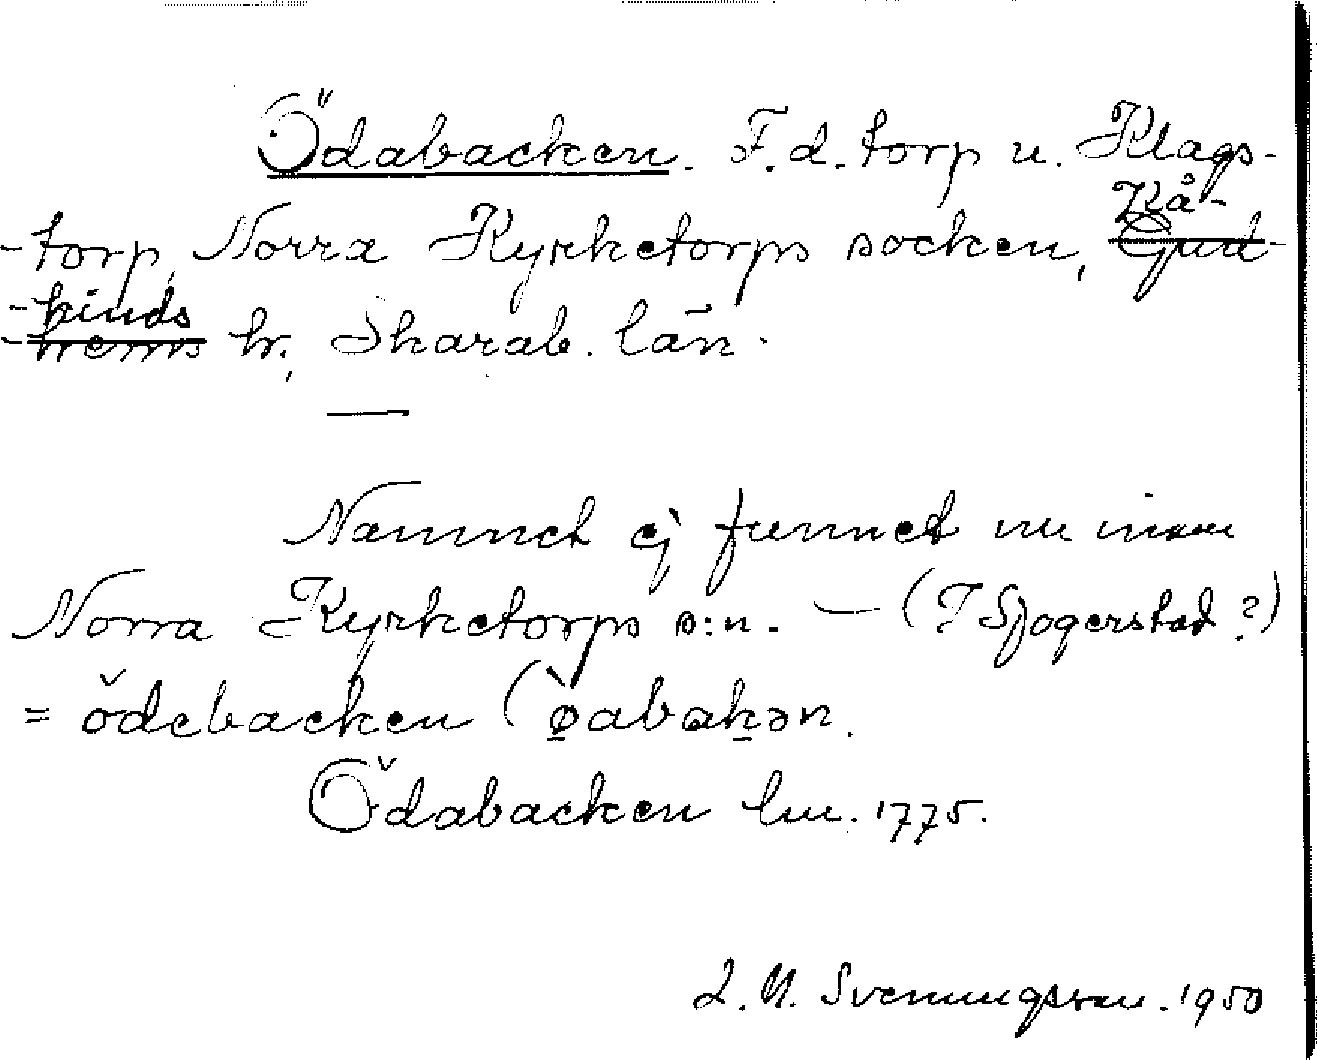 Ödabacken. F. d. torp u. Klags-
Kå-
-torp, Norra Kyrketorps socken, Gud-
-kinds
-hems hr., Skarab. län.
—
Namnet ej funnet nu inom
Norra Kyrketorps s:n. — (I Sjogerstad?)
= ödebacken (ø̀abakən.
Ödabacken lm. 1775.
Svenungsson. 1950